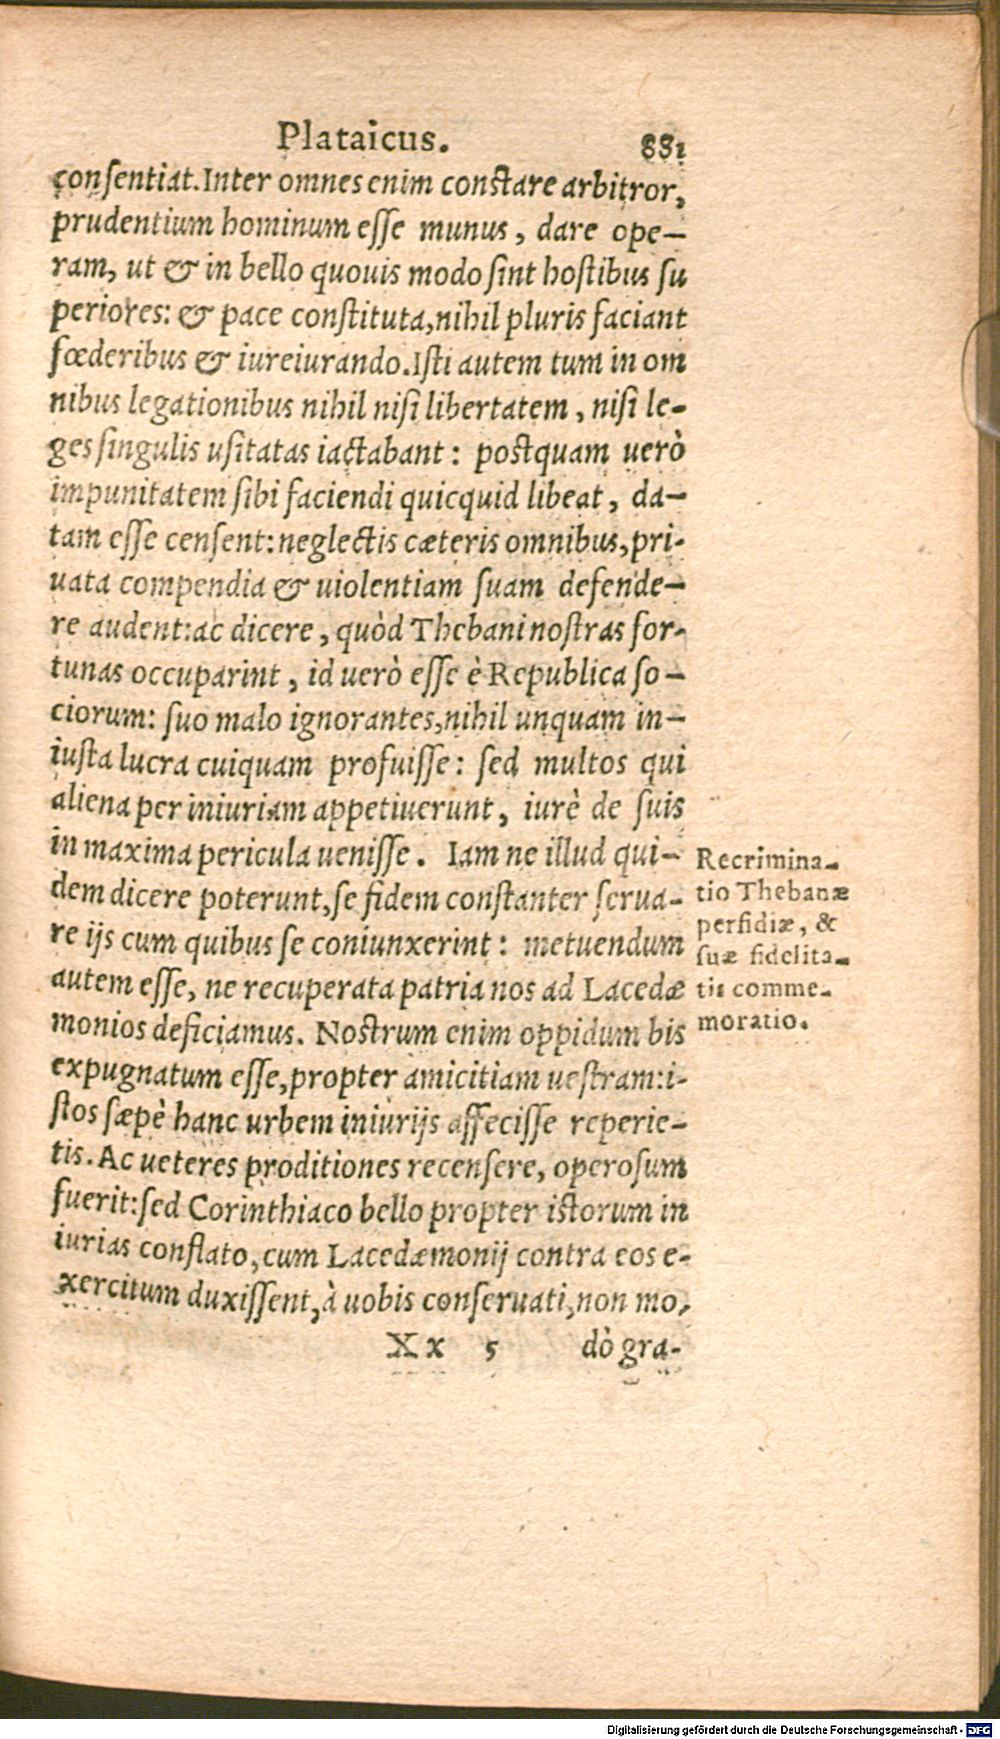 Plataicus. 881
conſentiat. Inter omnes enim conſtare arbitror,
prudentium hominum eſſe munus, dare ope-
ram, ut & in bello quouis modo ſint hoſtibus ſu
periores: & pace conſtituta, nihil pluris faciant
fœderibus & iureiurando. Iſti autem tum in om
nibus legationibus nihil niſi libertatem, niſi le-
ges ſingulis uſitatas iactabant: poſtquam uerò
impunitatem ſibi faciendi quicquid libeat, da-
tam eſſe cenſent: neglectis cæteris omnibus, pri-
uata compendia & uiolentiam ſuam defende-
re audent: ac dicere, quòd Thebani noſtras for-
tunas occuparint, id uerò eſſe è Republica ſo-
ciorum: ſuo malo ignorantes, nihil unquam in-
iuſta lucra cuiquam profuiſſe: ſed multos qui
aliena per iniuriam appetiuerunt, iurè de ſuis
in maxima pericula ueniſſe. Iam ne illud qui-
dem dicere poterunt, ſe fidem conſtanter ſerua-
re ijs cum quibus ſe coniunxerint: metuendum
autem eſſe, ne recuperata patria nos ad Lacedæ
monios deficiamus. Noſtrum enim oppidum bis
expugnatum eſſe, propter amicitiam ueſtram: i-
ſtos ſæpè hanc urbem iniurijs affeciſſe reperie-
tis. Ac ueteres proditiones recenſere, operoſum
fuerit: ſed Corinthiaco bello propter iſtorum in
iurias conflato, cum Lacedæmonij contra eos e-
xercitum duxiſſent, à uobis conſeruati, non mo-
Xx 5 dò gra-
Recrimina-
tio Thebanæ
perfidiæ, &
ſuæ fidelita-
tis comme-
moratio.
Digitalisierung gefördert durch die Deutsche Forschungsgemeinschaft - DFG